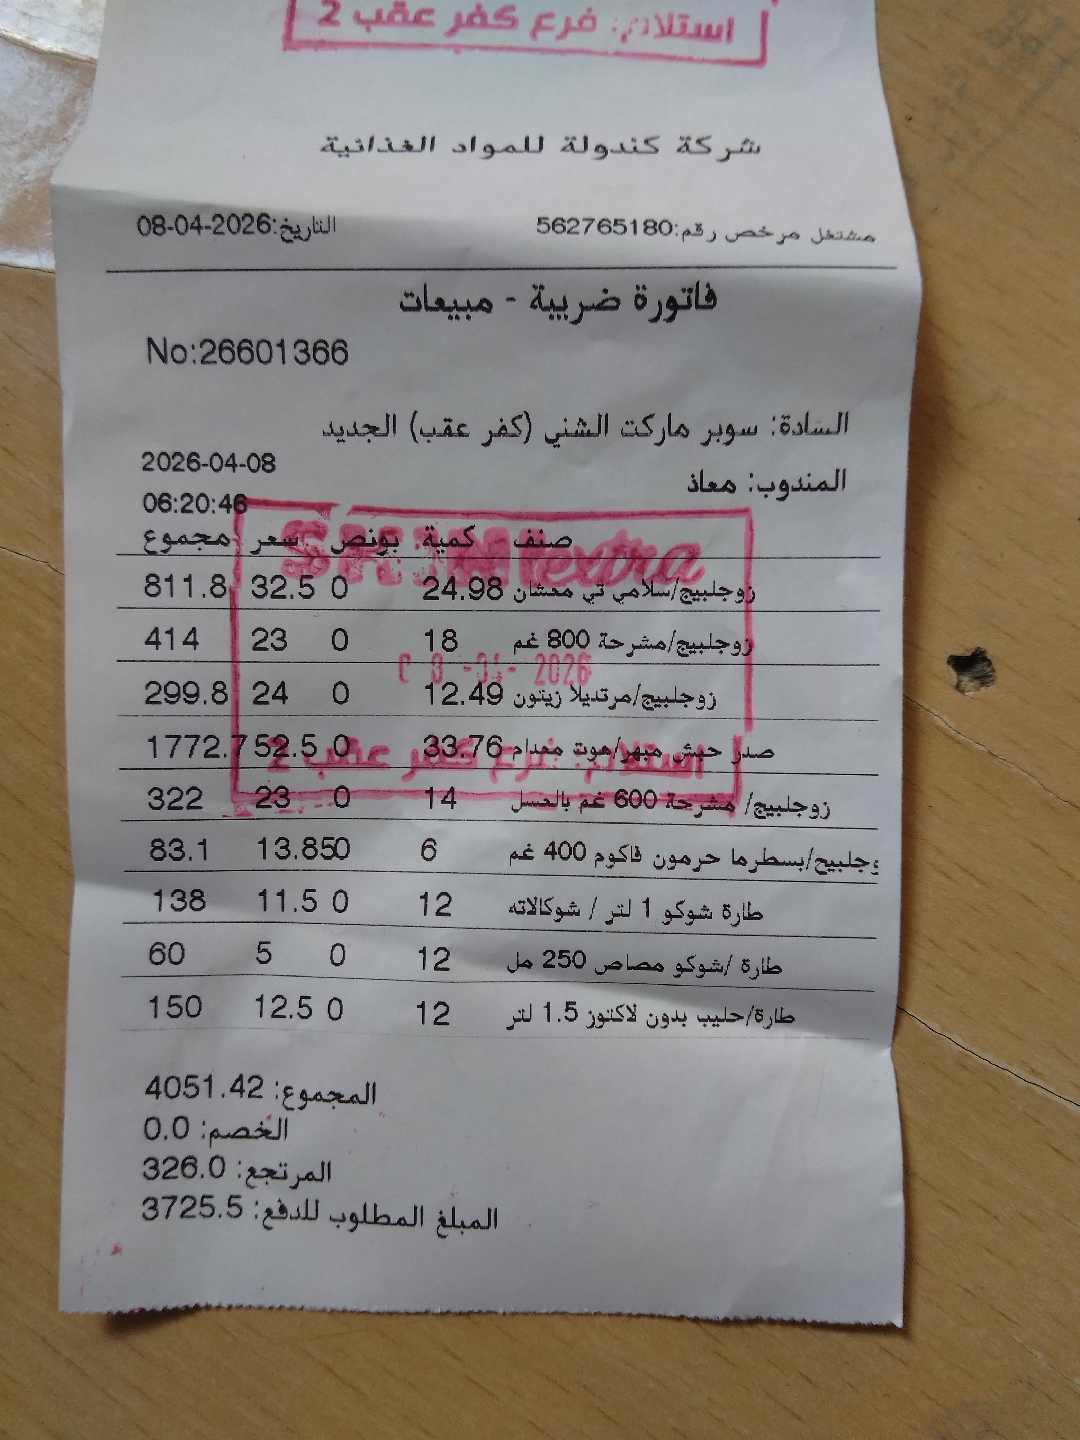 استلام: فرع كفر عقب 2
شركة كندولة للمواد الغذائية
مشتغل مرخص رقم:562765180 التاريخ:08-04-2026
فاتورة ضريبة - مبيعات
No:26601366
السادة: سوبر ماركت الشني (كفر عقب) الجديد
2026-04-08
المندوب: معاذ
06:20:46
صنف كمية بونص سعر مجموع
extra
زوجلبيج/سلامي تي معشان 24.98 0 32.5 811.8
زوجلبيج/مشرحة 800 غم 18 0 23 414
08-04-2026
زوجلبيج/مرتديلا زيتون 12.49 0 24 299.8
صدر حبش مبهر/هوت معدام 33.76 0 52.5 1772.7
استلام: فرع كفر عقب 2
زوجلبيج/ مشرحة 600 غم بالعسل 14 0 23 322
وجلبيح/بسطرما حرمون فاكوم 400 غم 6 0 13.85 83.1
طارة شوكو 1 لتر / شوكالاته 12 0 11.5 138
طارة /شوكو مصاص 250 مل 12 0 5 60
طارة/حليب بدون لاكتوز 1.5 لتر 12 0 12.5 150
المجموع: 4051.42
الخصم: 0.0
المرتجع: 326.0
المبلغ المطلوب للدفع: 3725.5